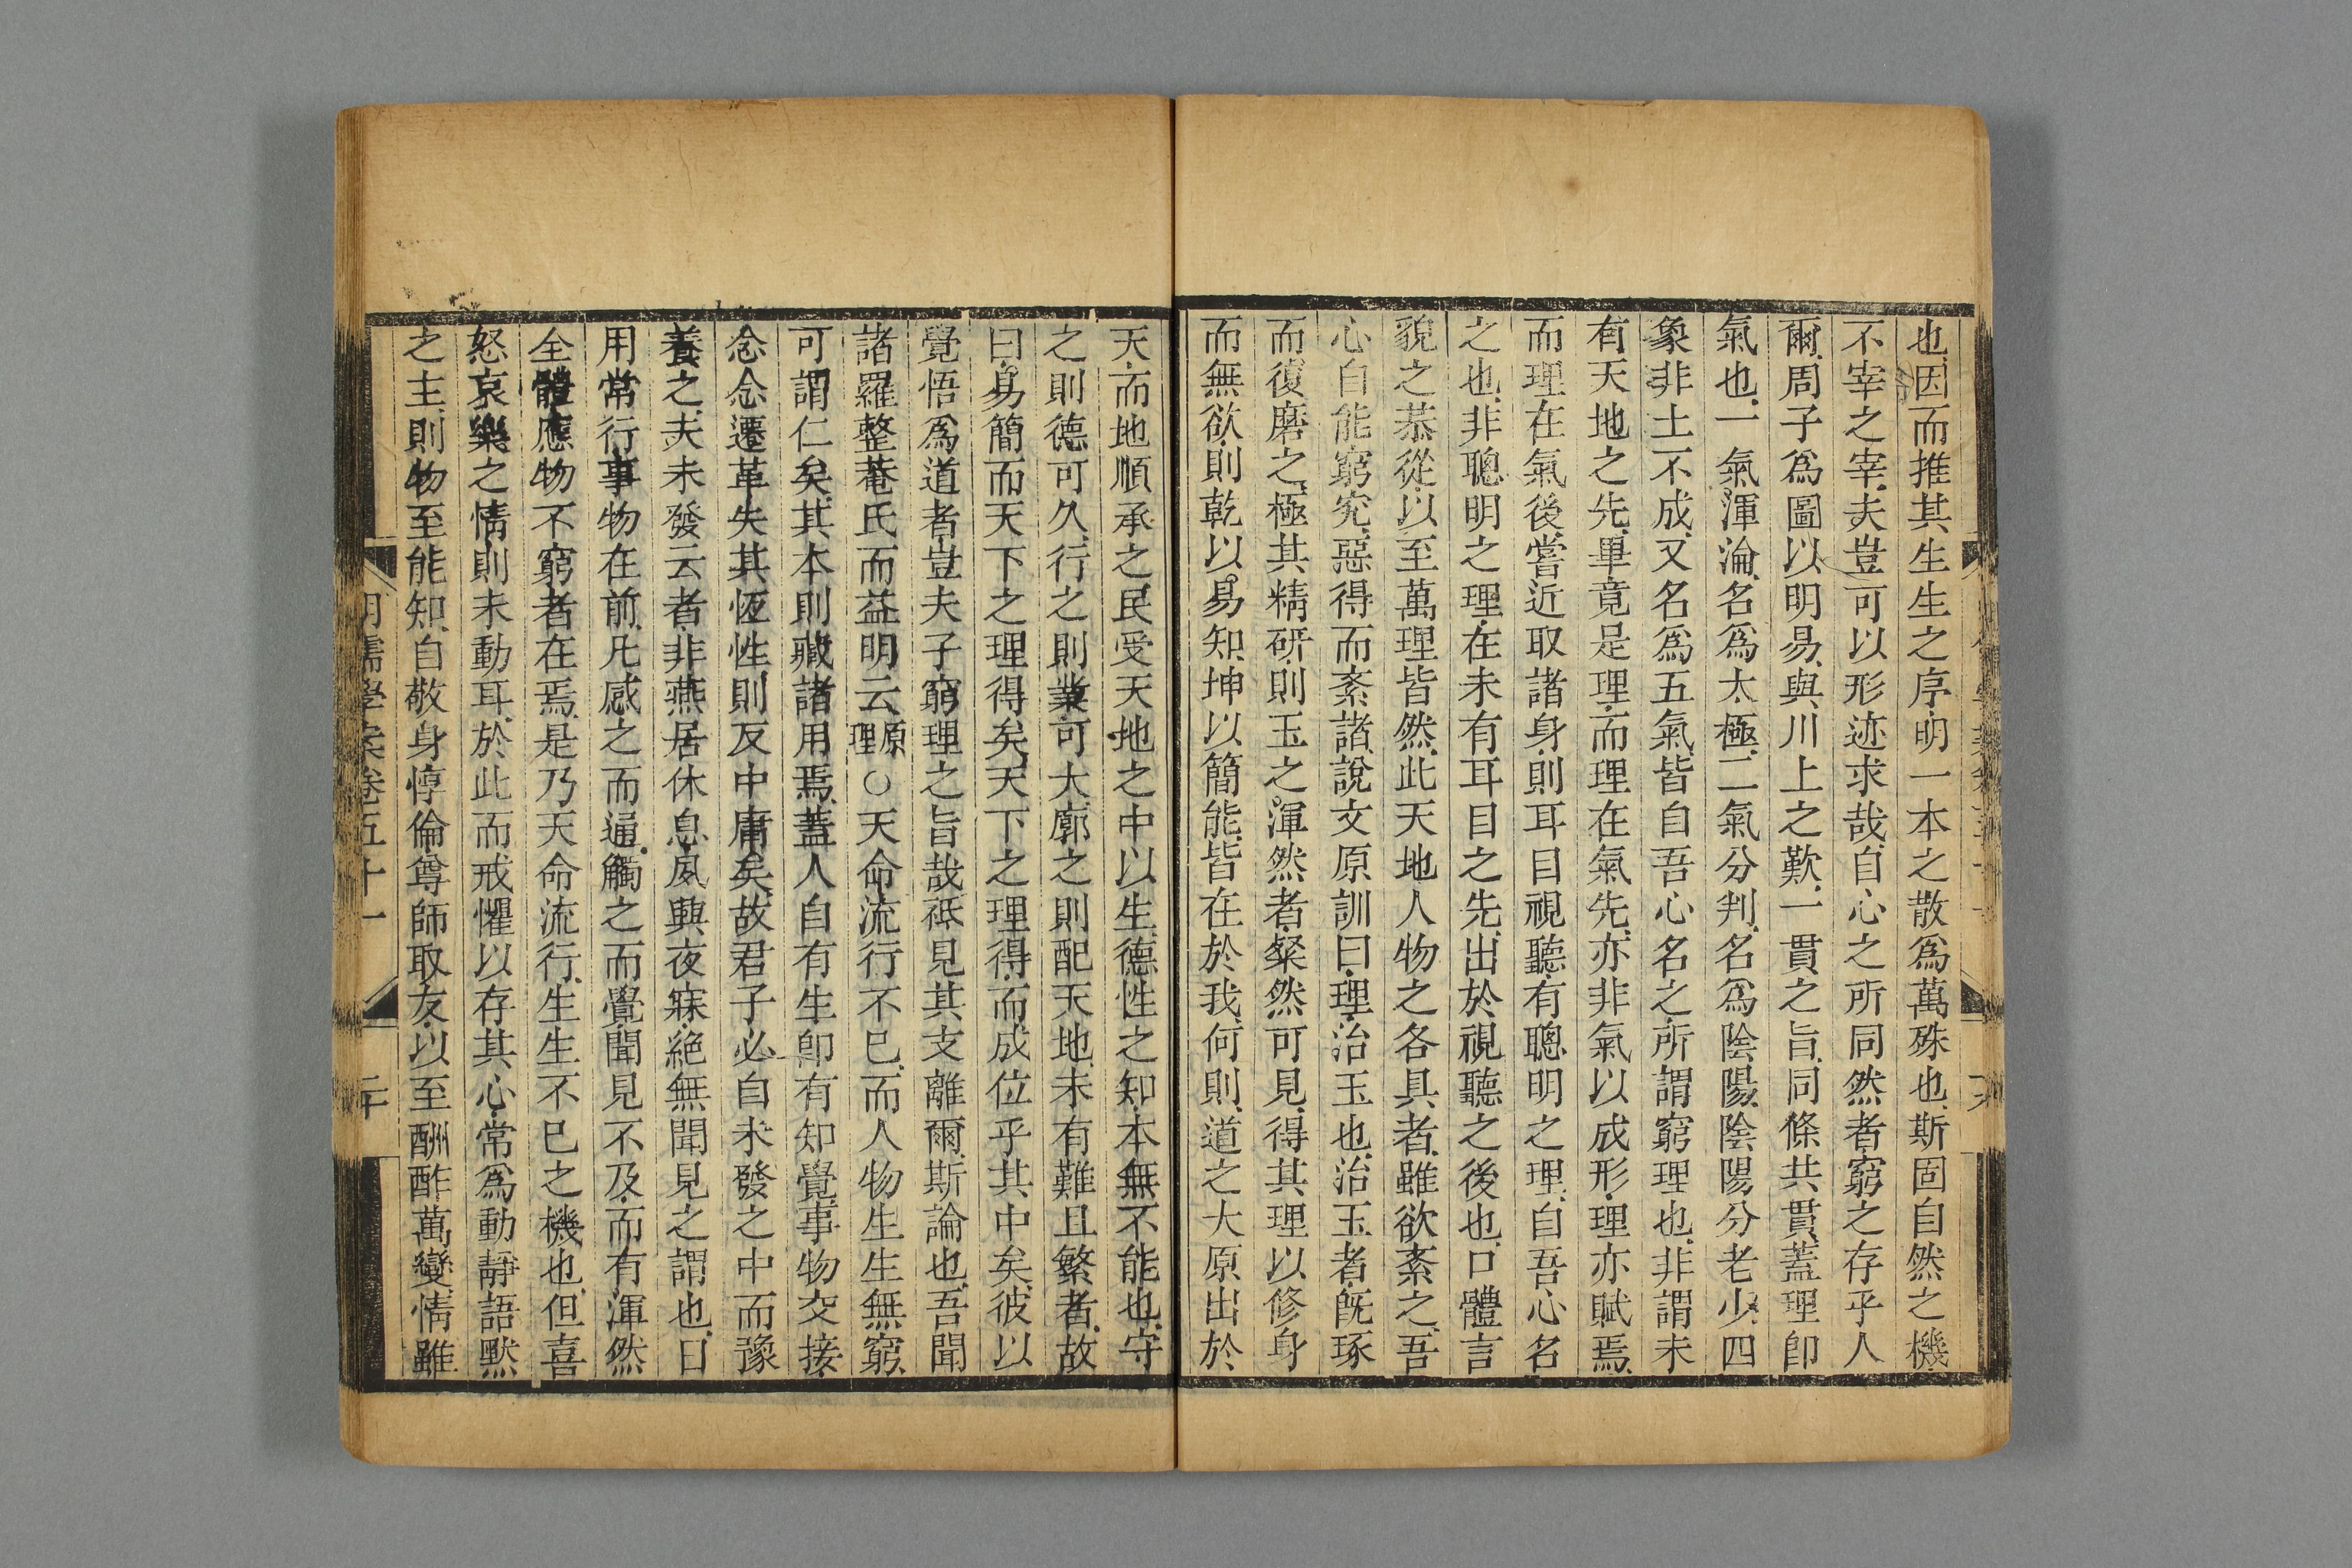 也因而推其生生之序明一本之散爲萬殊也斯固自然之機
不宰之宰夫豈可以形迹求哉自心之所同然者窮之存乎人
爾周子爲圖以明易與川上之歎一貫之旨同條共貫蓋理卽
氣也一氣渾淪名爲太極二氣分判名爲陰陽陰陽分老少四
象非土不成又名爲五氣皆自吾心名之所謂窮理也非謂未
有天地之先畢竟是理而理在氣先亦非氣以成形理亦賦焉
而理在氣後嘗近取諸身則耳目視聽有聰明之理自吾心名
之也非聰明之理在未有耳目之先出於視聽之後也口體言
貌之恭從以至萬理皆然此天地人物之各具者雖欲紊之吾
心自能窮究惡得而紊諸說文原訓曰理治玉也治玉者旣琢
而復磨之極其精研則玉之渾然者粲然可見得其理以修身
而無欲則乾以易知坤以簡能皆在於我何則道之大原出於
天而地順承之民受天地之中以生德性之知本無不能也守
之則德可久行之則業可大廓之則配天地未有難且繁者故
曰易簡而天下之理得矣天下之理得而成位乎其中矣彼以
覺悟爲道者豈夫子窮理之旨哉祗見其支離爾斯論也吾聞
諸羅整菴氏而益明云原理○天命流行不已而人物生生無窮
可謂仁矣其本則藏諸用焉蓋人自有生卽有知覺事物交接
念念遷革失其恆性則反中庸矣故君子必自未發之中而豫
養之夫未發云者非燕居休息夙興夜寐絕無聞見之謂也日
用常行事物在前凡感之而通觸之而覺聞見不及而有渾然
全體應物不窮者在焉是乃天命流行生生不已之機也但喜
怒哀樂之情則未動耳於此而戒懼以存其心常爲動靜語默
之主則物至能知自敬身惇倫尊師取友以至酬酢萬變情雖
明儒學案卷五十一
二十